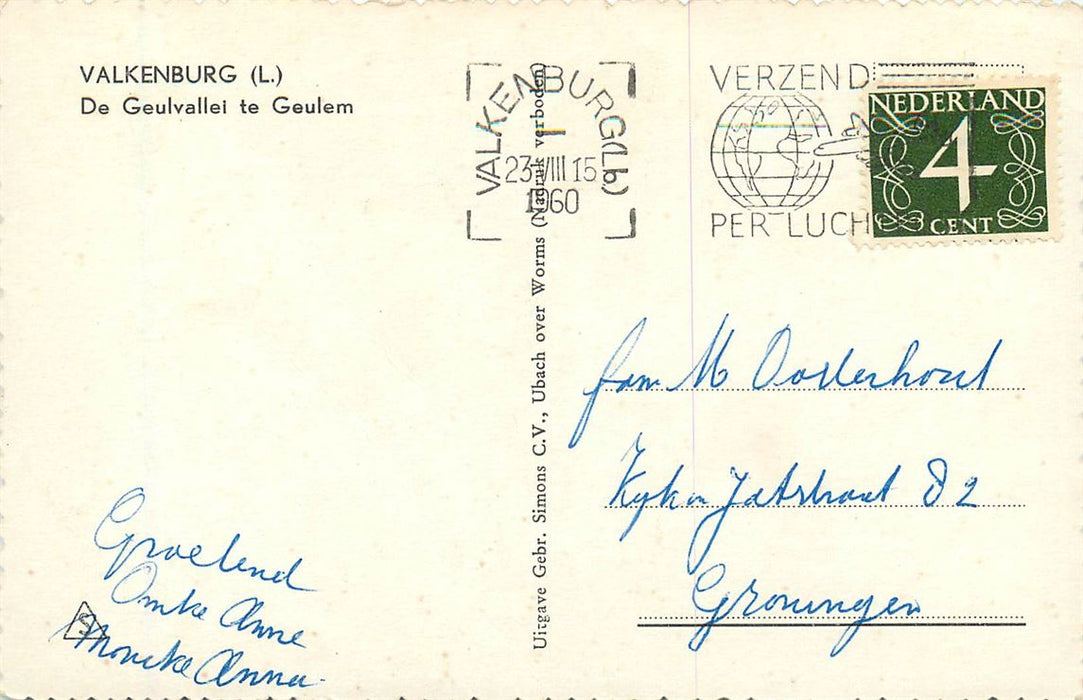 VALKENBURG (L.)
De Geulvallei te Geulem
VALKENBURG (Lb)
23-VIII 15
1960
VERZEND
PER LUCH
NEDERLAND
4
CENT
Uitgave Gebr. Simons C.V., Ubach over Worms (Nadruk verboden)
fam M Oosterhout
Kyk in Jatstraat 82
Groningen
Groetend
Omke Anne
Anna